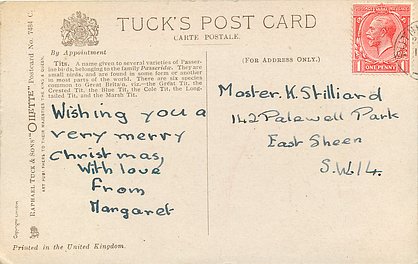 TUCK'S POST CARD
CARTE POSTALE.
By Appointment
(FOR ADDRESS ONLY.)
TITS. A name given to several varieties of Passer-
ine birds, belonging to the family Passeridæ. They are
small birds, and are found in some form or another
in most parts of the world. There are six species
common to Great Britain,—the Great Tit, the
Crested Tit, the Blue Tit, the Cole Tit, the Long-
tailed Tit, and the Marsh Tit.
Wishing you a
very merry
Christmas,
With love
From
Margaret
Master. K. Stilliard
142 Palewell Park
East Sheen
S.W.14.
1 1
ONE PENNY
RAPHAEL TUCK & SONS' "OILETTE" Postcard No. 7484 C.
ART PUBLISHERS TO THEIR MAJESTIES THE KING & QUEEN.
Copyright London
Printed in the United Kingdom.